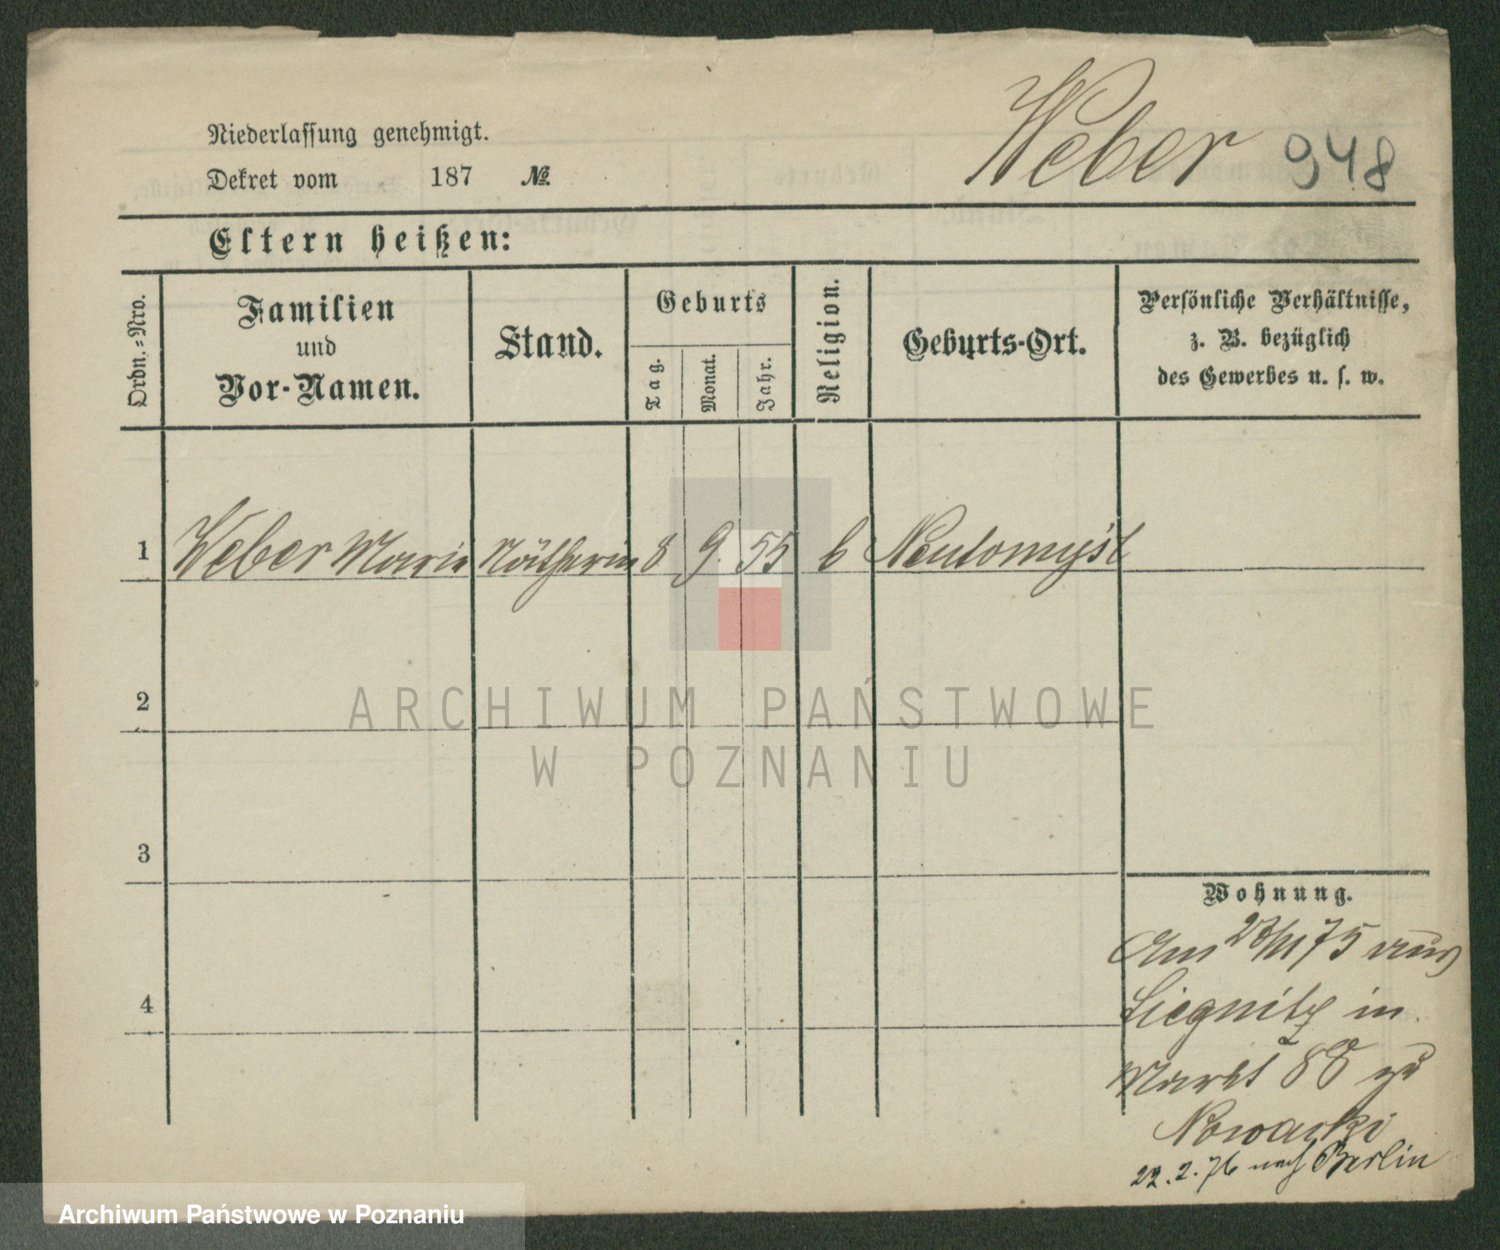 Weber 948
Niederlassung genehmigt.
Dekret vom 187 №
Eltern heißen:
Ordn.=Nro.
Familien
und
Vor-Namen.
Stand.
Geburts
Tag.
Monat.
Jahr.
Religion.
Geburts-Ort.
Persönliche Verhältnisse,
z. B. bezüglich
des Gewerbes u. s. w.
1 Weber Marie Nätherin 8 9. 55 Neutomysl
2
3
4
Wohnung.
Am 75 aus
Liegnitz in
Markt 88 zu
Nowacki
22.2.76 nach Berlin
ARCHIWUM PAŃSTWOWE
W POZNANIU
Archiwum Państwowe w Poznaniu